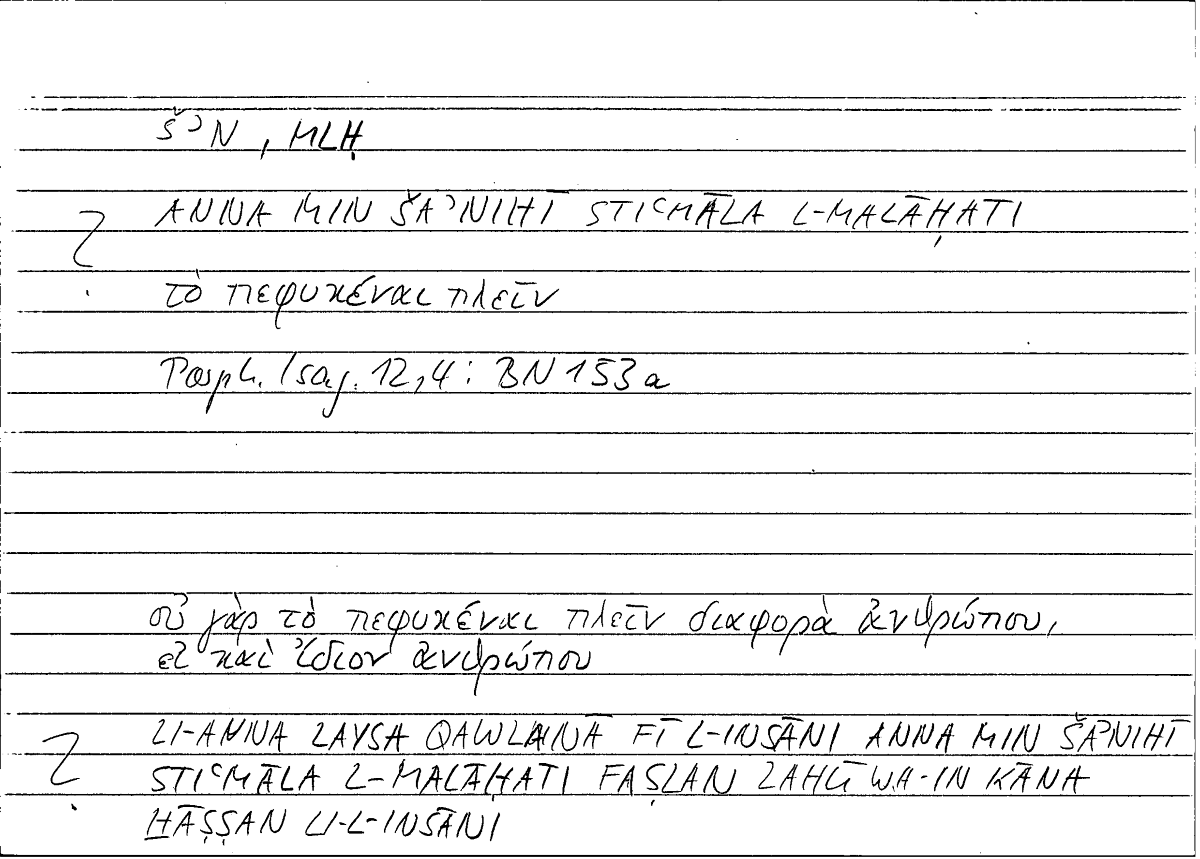 ŠʾN, MLḤ
? ANNA MIN ŠAʾNIHĪ STIʿMĀLA L-MALĀḤATI
τὸ πεφυκέναι πλεῖν
Porph. Isag. 12,4: BN 153a
οὐ γὰρ τὸ πεφυκέναι πλεῖν διαφορὰ ἀνθρώπου,
εἰ καὶ ἴδιον ἀνθρώπου
? LI-ANNA LAYSA QAWLANĀ FĪ L-INSĀNI ANNA MIN ŠAʾNIHĪ
STIʿMĀLA L-MALĀḤATI FAṢLAN LAHŪ WA-IN KĀNA
ḪĀṢṢAN LI-L-INSĀNI